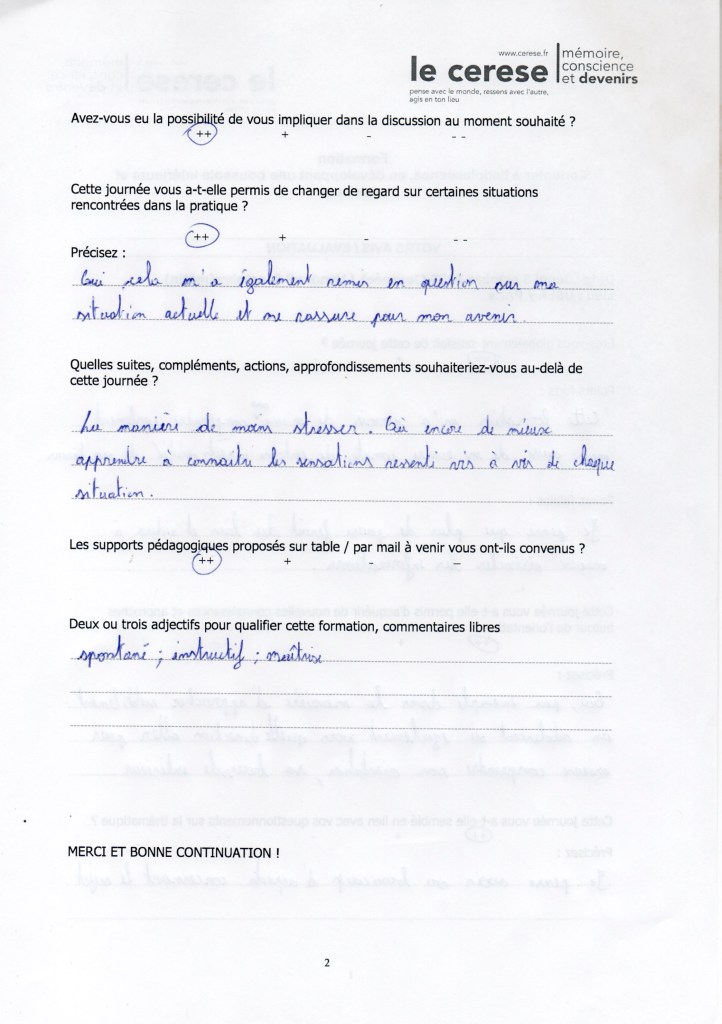 www.cerese.fr
le cerese
mémoire,
conscience
et devenirs
pense avec le monde, ressens avec l'autre,
agis en ton lieu
Avez-vous eu la possibilité de vous impliquer dans la discussion au moment souhaité ?
++ + - - -
Cette journée vous a-t-elle permis de changer de regard sur certaines situations
rencontrées dans la pratique ?
++ + - - -
Précisez :
Oui cela m'a également remis en question sur ma
situation actuelle et me rassure pour mon avenir.
Quelles suites, compléments, actions, approfondissements souhaiteriez-vous au-delà de
cette journée ?
La manière de moins stresser. Où encore de mieux
apprendre à connaitre les sensations ressenti vis à vis de chaque
situation.
Les supports pédagogiques proposés sur table / par mail à venir vous ont-ils convenus ?
++ + - --
Deux ou trois adjectifs pour qualifier cette formation, commentaires libres
spontané ; instructif ; maîtrise
MERCI ET BONNE CONTINUATION !
2